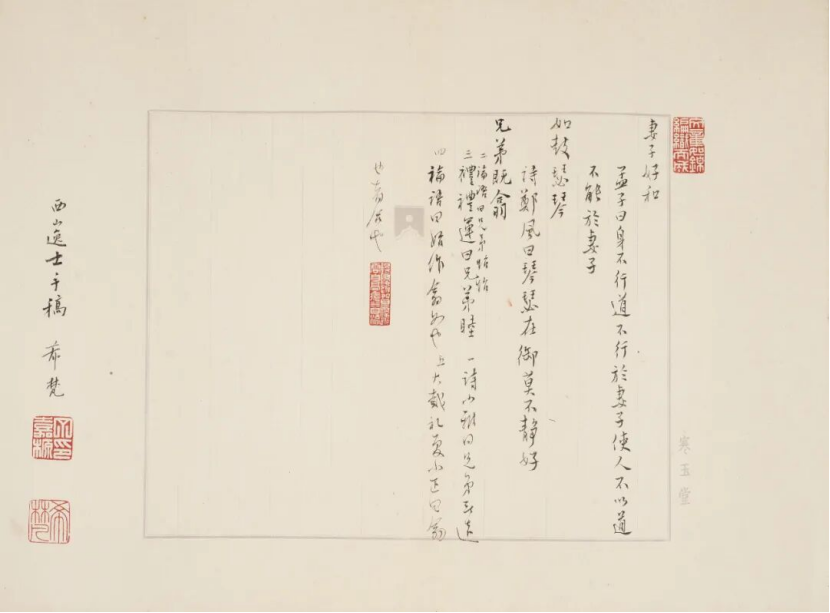 寒玉堂
妻子好和
孟子曰身不行道不行於妻子使人不以道
不能於妻子
如鼓瑟琴
詩鄭風曰琴瑟在御莫不靜好
兄弟既翕
二論語曰兄弟怡怡
三禮禮運曰兄弟睦 一詩小雅曰兄弟無遠
四 論語曰始作翕如也 大戴礼夏小正曰翕
也翕合也
西山逸士手稿 希梵